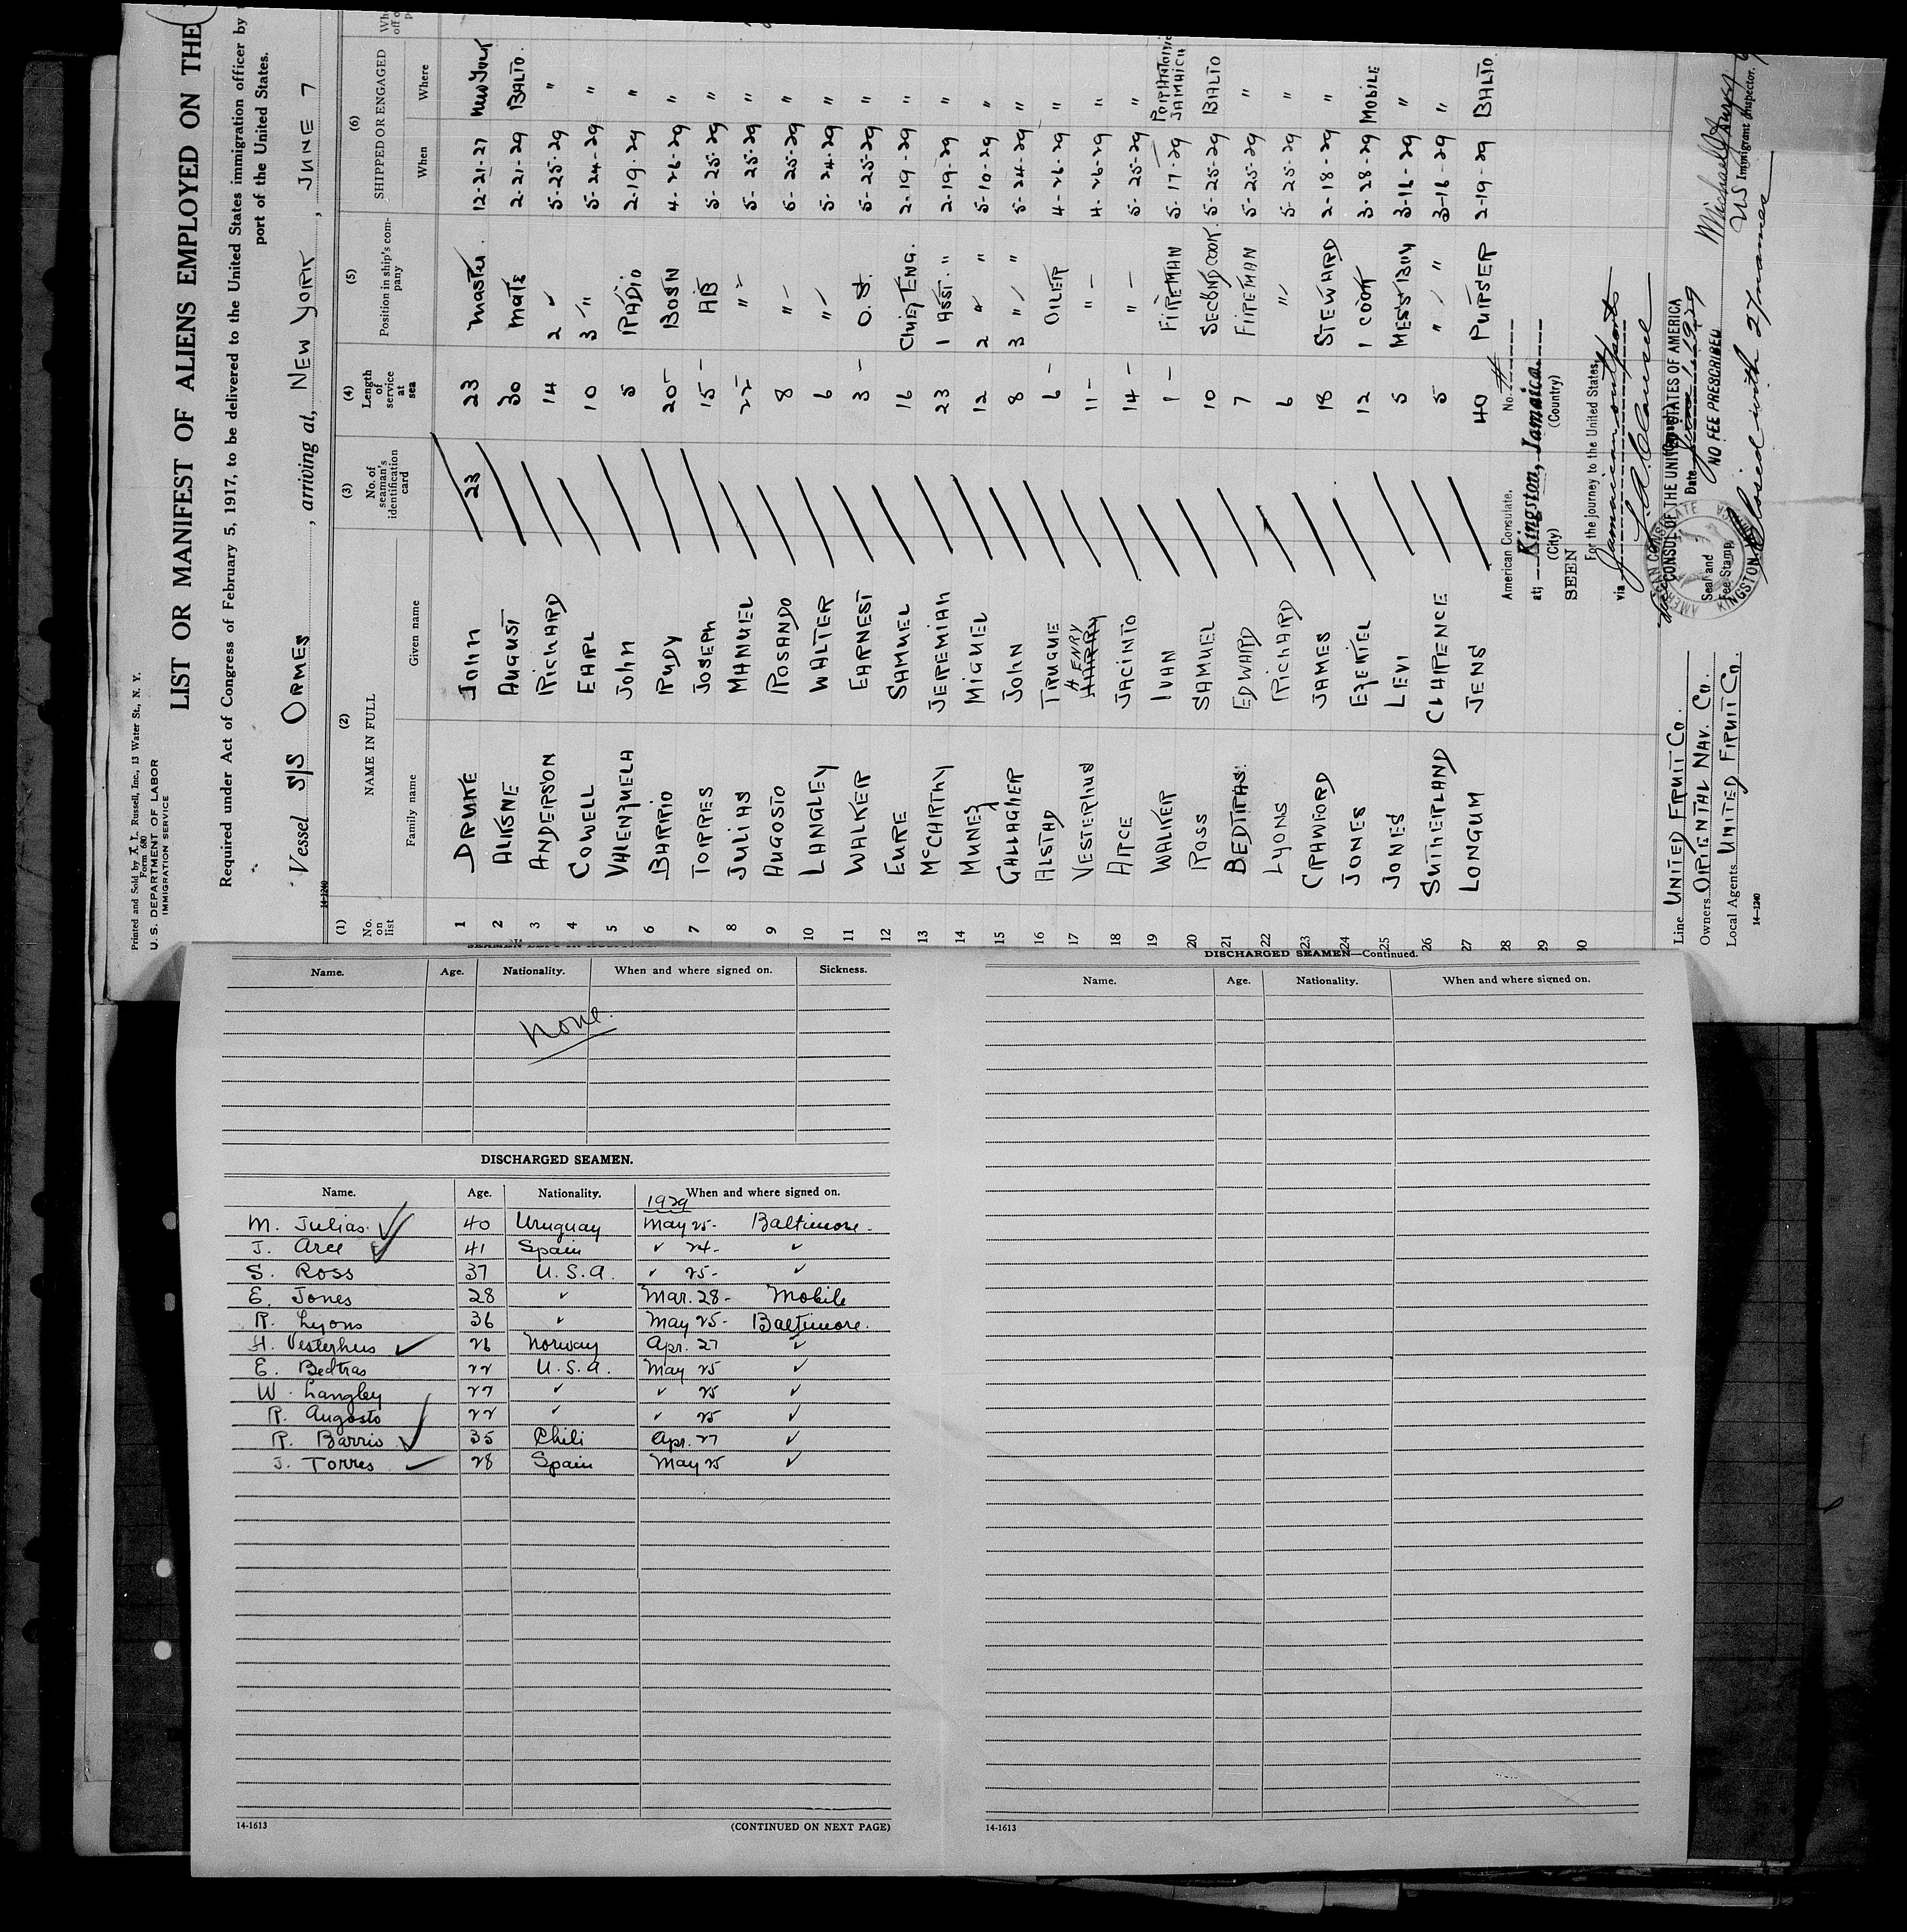 Printed and Sold by A. L. Russell, Inc., 13 Water St., N. Y.
Form 680
U. S. DEPARTMENT OF LABOR
IMMIGRATION SERVICE
LIST OR MANIFEST OF ALIENS EMPLOYED ON THE
Required under Act of Congress of February 5, 1917, to be delivered to the United States immigration officer by
port of the United States.
Vessel S/S ORMES, arriving at, NEW YORK, JUNE 7
14-1240
(1) (2) (3) (4) (5) (6)
No. on list NAME IN FULL No. of seaman's identification card Length of service at sea Position in ship's company SHIPPED OR ENGAGED
Family name Given name When Where
1 DRUKE John 23 23 Master. 12-21-27 New York
2 ALKSNE AUGUST 30 Mate 2-21-29 BALTO.
3 ANDERSON RICHARD 14 2 " 5-25-29 "
4 COWELL EARL 10 3 " 5-24-29 "
5 VALENZUELA John 5 RADIO 2-19-29 "
6 BARRIO RUDY 20 BOSN 4-26-29 "
7 TORRES JOSEPH 15 AB 5-25-29 "
8 JULIAS MANUEL 22 " 5-25-29 "
9 AUGOSTO ROSANDO 8 " 5-25-29 "
10 LANGLEY WALTER 6 " 5-24-29 "
11 WALKER EARNEST 3 O.S. 5-25-29 "
12 EURE SAMUEL 16 CHIEF ENG. 2-19-29 "
13 McCARTHY JEREMIAH 23 1 ASST. " 2-19-29 "
14 MUNEZ MIGUEL 12 2 " " 5-10-29 "
15 GALLAGHER JOHN 8 3 " " 5-24-29 "
16 ALSTAD TRUGUE 6 OILER 4-26-29 "
17 VESTERHUS HARRY HENRY 11 " 4-26-29 "
18 ARCE JACINTO 14 " 5-25-29 "
19 WALKER IVAN 1 FIREMAN 5-17-29 PORT ANTONIO JAMAICA
20 ROSS SAMUEL 10 SECOND COOK. 5-25-29 BALTO
21 BEDTRAS EDWARD 7 FIREMAN 5-25-29 "
22 LYONS RICHARD 6 " 5-25-29 "
23 CRAWFORD JAMES 18 STEWARD 2-18-29 "
24 JONES EZEKIEL 12 1 COOK 3-28-29 MOBILE
25 JONES LEVI 5 MESSBOY 3-16-29 "
26 SUTHERLAND CLARENCE 5 " " 3-16-29 "
27 LONGUM JENS 40 PURSER 2-19-29 BALTO.
28
29
30
American Consulate, No.
at Kingston, Jamaica.
(City) (Country)
SEEN
For the journey to the United States,
via Jamaican outports
CONSUL OF THE UNITED STATES OF AMERICA
Date June 1 1929
Seal and Fee Stamp
NO FEE PRESCRIBED
AMERICAN CONSULATE
KINGSTON JAMAICA
Closed with 27 names
Line UNITED FRUIT CO.
Owners ORIENTAL NAV. CO.
Local Agents UNITED FRUIT CO.
US Immigrant Inspector.
14-1240
Name. Age. Nationality. When and where signed on. Sickness.
None.
DISCHARGED SEAMEN.
Name. Age. Nationality. When and where signed on.
1929
M. Julias. 40 Uruguay May 25- Baltimore.
J. Arce 41 Spain " 24- "
S. Ross 37 U.S.A. " 25- "
E. Jones 28 " Mar. 28- Mobile
R. Lyons 36 " May 25- Baltimore.
H. Vesterhus 26 Norway Apr. 27 "
E. Bedtras 22 U.S.A. May 25 "
W. Langley 27 " " 25 "
R. Augosto 22 " " 25 "
R. Barrio 35 Chili Apr. 27 "
J. Torres 28 Spain May 25 "
14-1613
(CONTINUED ON NEXT PAGE)
DISCHARGED SEAMEN—Continued.
Name. Age. Nationality. When and where signed on.
14-1613